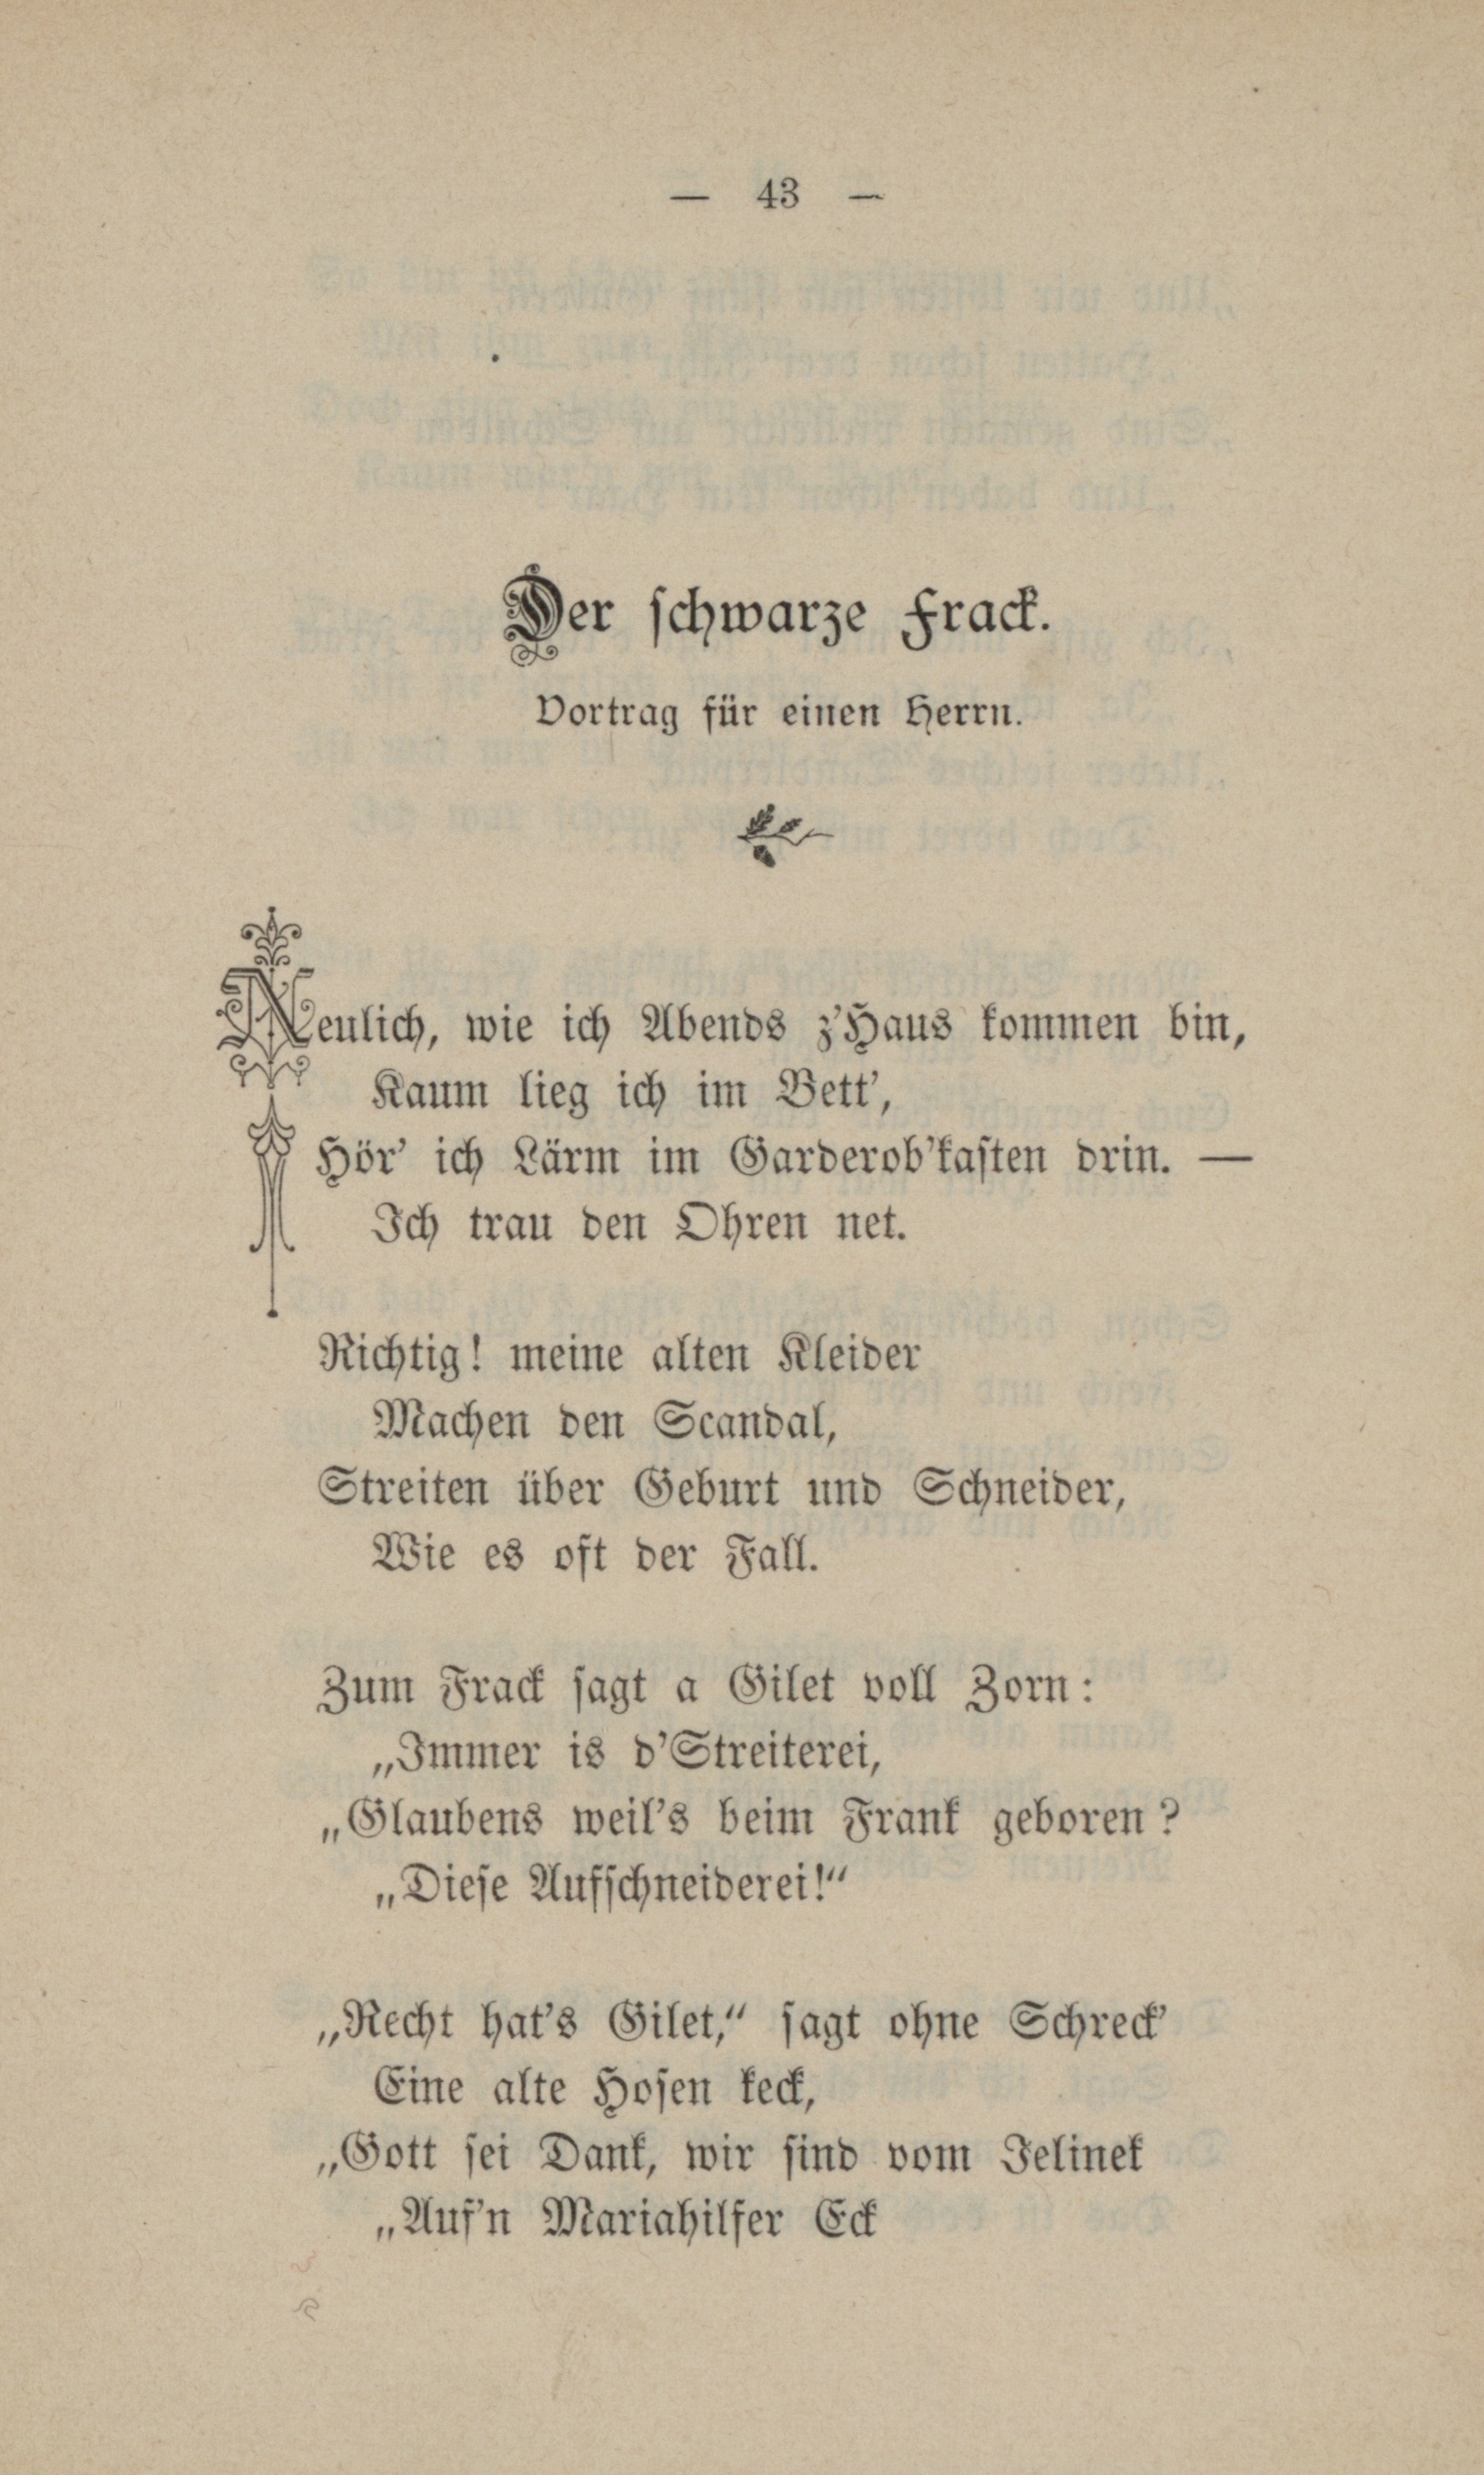 — 43 —
Der schwarze Frack.
Vortrag für einen Herrn.
Neulich, wie ich Abends z'Haus kommen bin,
Kaum lieg ich im Bett',
Hör' ich Lärm im Garderob'kasten drin. —
Ich trau den Ohren net.
Richtig! meine alten Kleider
Machen den Scandal,
Streiten über Geburt und Schneider,
Wie es oft der Fall.
Zum Frack sagt a Gilet voll Zorn:
„Immer is d'Streiterei,
„Glaubens weil's beim Frank geboren?
„Diese Aufschneiderei!“
„Recht hat's Gilet,“ sagt ohne Schreck'
Eine alte Hosen keck,
„Gott sei Dank, wir sind vom Jelinek
„Auf'n Mariahilfer Eck